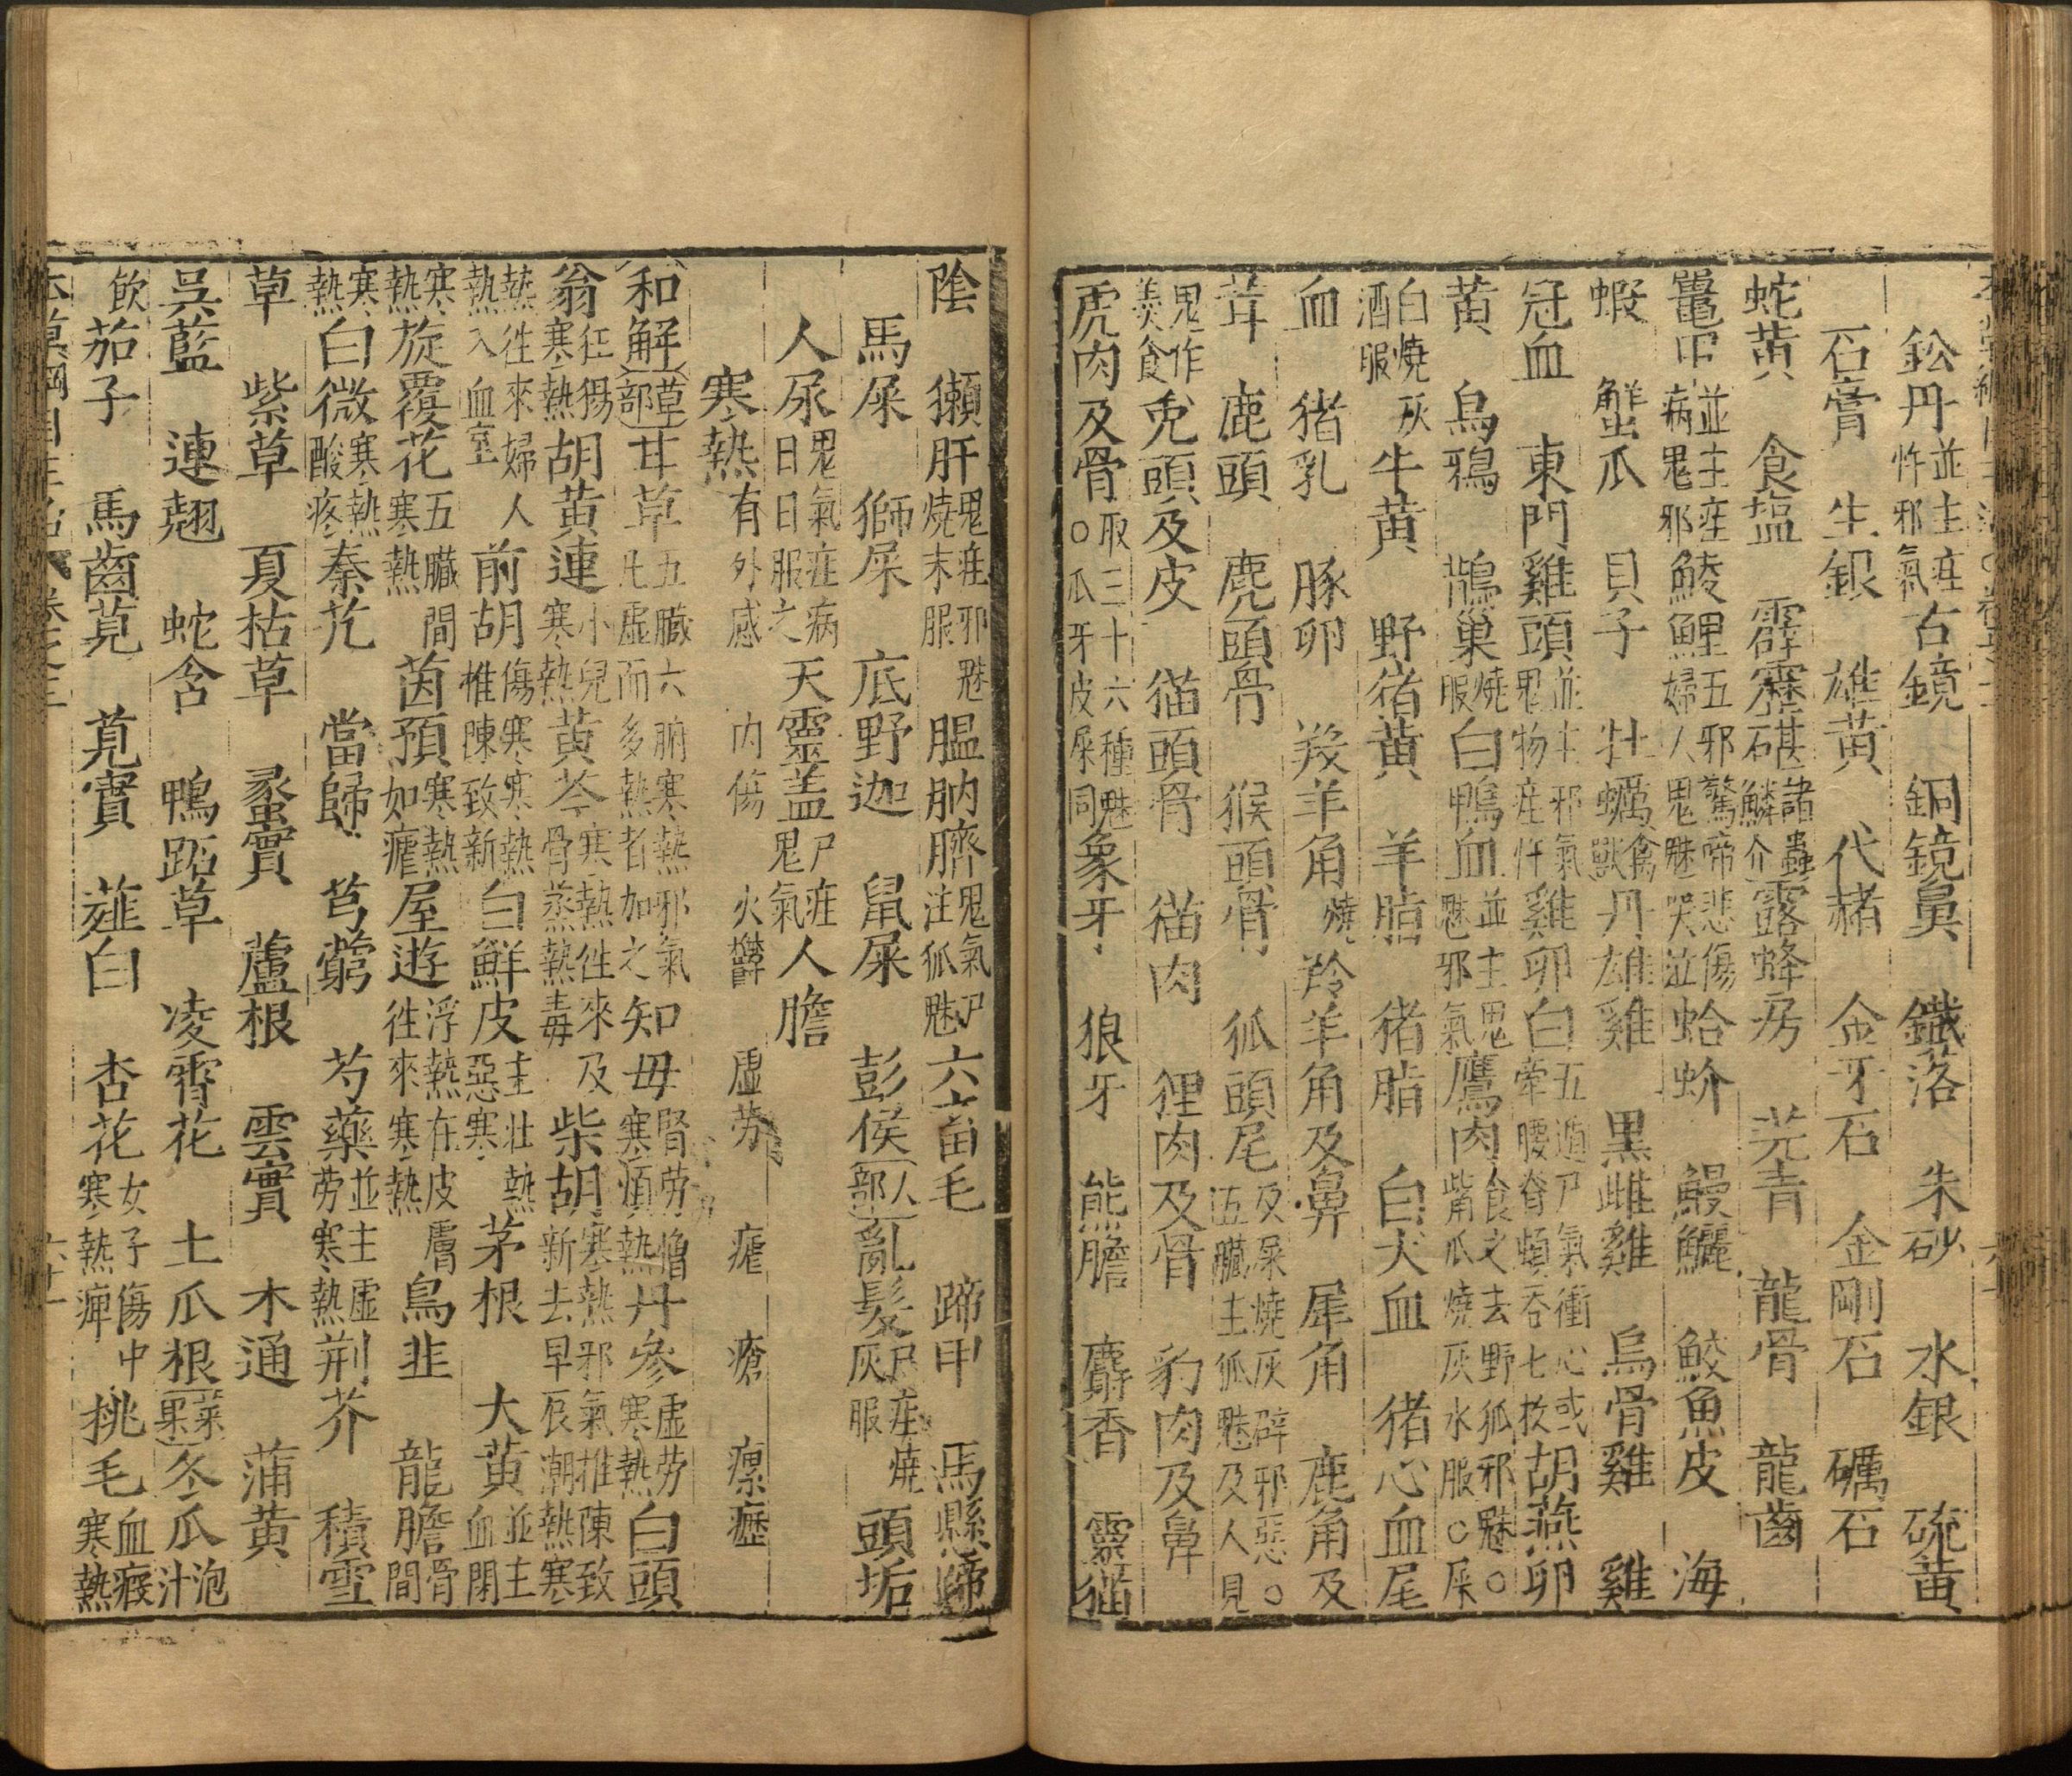 鈆丹並主疰忤邪氣古鏡　銅鏡鼻　鐵落　朱砂　水銀　硫黃
石膏　生銀　雄黃　代赭　金牙石　金剛石　礪石
蛇黃　食塩　霹靂碪諸石蟲鱗介露蜂房　芫青　龍骨　龍齒
鼉甲並主疰病鬼邪鯪鯉五邪驚啼悲傷婦人鬼魅哭泣蛤蚧　鰻鱺　鮫魚皮　海
蝦　蟹爪　貝子　牡蠣禽獸丹雄雞　黑雌雞　烏骨雞　雞
冠血　東門雞頭並主邪氣鬼物疰忤雞卵白五遁尸氣衝心或牽腰脊頓吞七枚胡燕卵
黃　烏鴉　鵲巢燒服白鴨血並主鬼魅邪氣鷹肉食之去野狐邪魅○觜爪燒灰水服○屎
白燒灰酒服牛黃　野猪黃　羊脂　猪脂　白犬血　猪心血尾
血　猪乳　豚卵　羖羊角燒羚羊角及鼻　犀角　鹿角及
茸　鹿頭　麂頭骨　猴頭骨　狐頭尾及屎燒灰辟邪惡○五臟主狐魅及人見
鬼作羹食兔頭及皮　猫頭骨　猫肉　狸肉及骨　豹肉及鼻
虎肉及骨取三十六種魅○爪牙皮屎同象牙　狼牙　熊膽　麝香　靈猫
陰　獺肝鬼疰邪魅燒末服膃肭臍鬼氣尸注狐魅六畜毛　蹄甲　馬懸蹄
馬屎　獅屎　底野迦　鼠屎　彭侯人部亂髮尸疰燒灰服頭垢
人尿鬼氣疰病日日服之天靈盖尸疰鬼氣人膽
寒熱有外感　内傷　火鬱　虛勞　瘧　瘡　瘰癧
和解草部甘草五臟六腑寒熱邪氣凡虛而多熱者加之知母腎勞憎寒煩熱丹參虛勞寒熱白頭
翁狂猲寒熱胡黃連小兒寒熱黃芩寒熱徃來及骨蒸熱毒柴胡寒熱邪氣推陳致新去早辰潮熱寒
熱徃來婦人熱入血室前胡傷寒寒熱推陳致新白鮮皮主壯熱惡寒茅根　大黃並主血閉
寒熱旋覆花五臟間寒熱茵預寒熱如瘧屋遊浮熱在皮膚徃來寒熱烏韭　龍膽骨間
寒熱白微寒熱酸疼秦艽　當歸　芎藭　芍藥並主虛勞寒熱荆芥　積雪
草　紫草　夏枯草　蠡實　蘆根　雲實　木通　蒲黃
吳藍　連翹　蛇含　鴨跖草　凌霄花　土瓜根菜果冬瓜泡汁
飲茄子　馬齒莧　莧實　薤白　杏花女子傷中寒熱痺桃毛血瘕寒熱